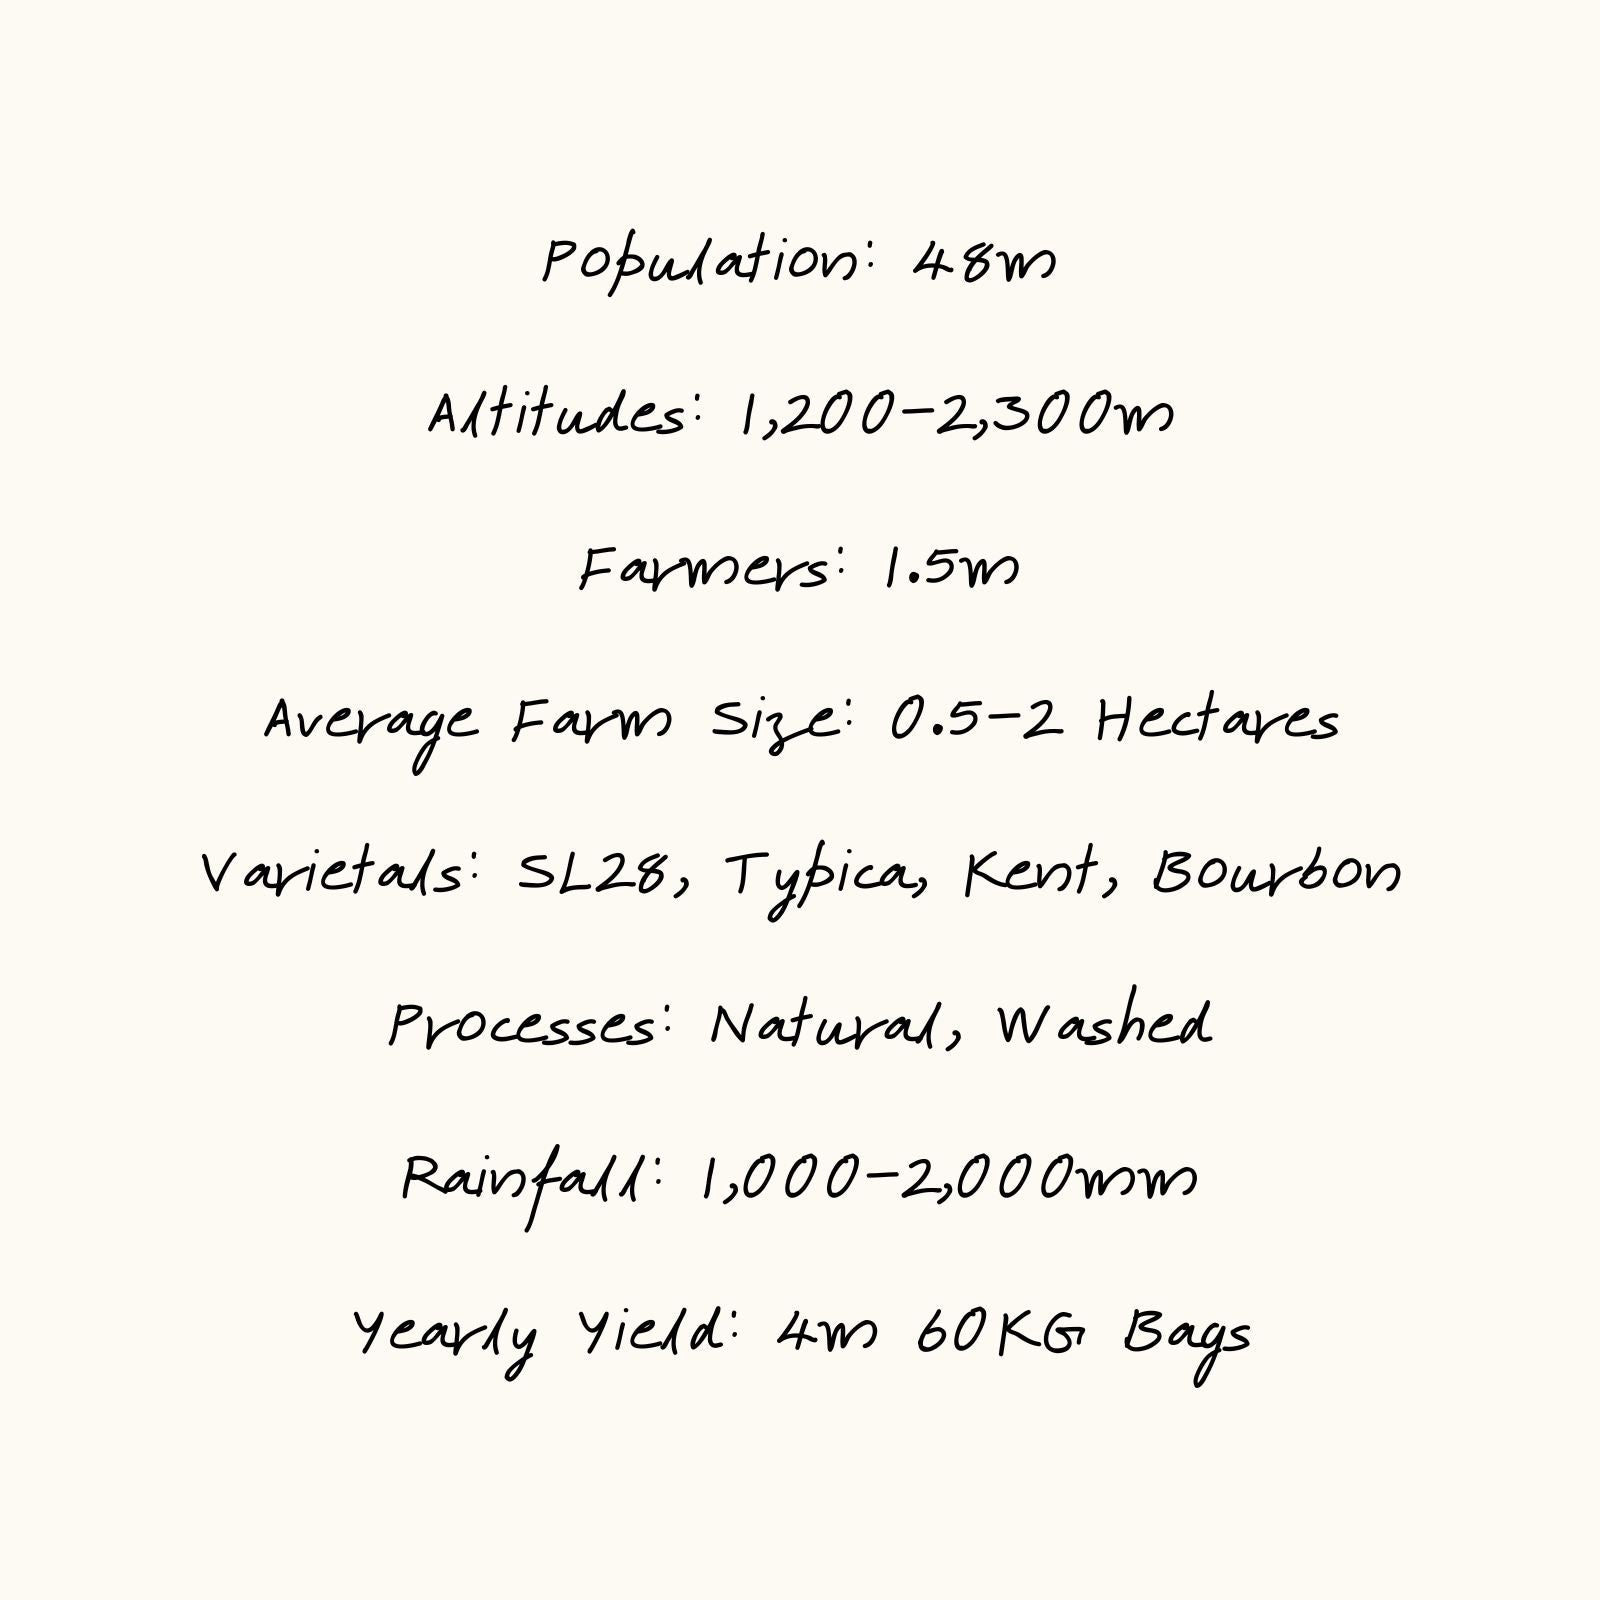 Population: 48m
Altitudes: 1,200-2,300m
Farmers: 1.5m
Average Farm Size: 0.5-2 Hectares
Varietals: SL28, Typica, Kent, Bourbon
Processes: Natural, Washed
Rainfall: 1,000-2,000mm
Yearly Yield: 4m 60KG Bags